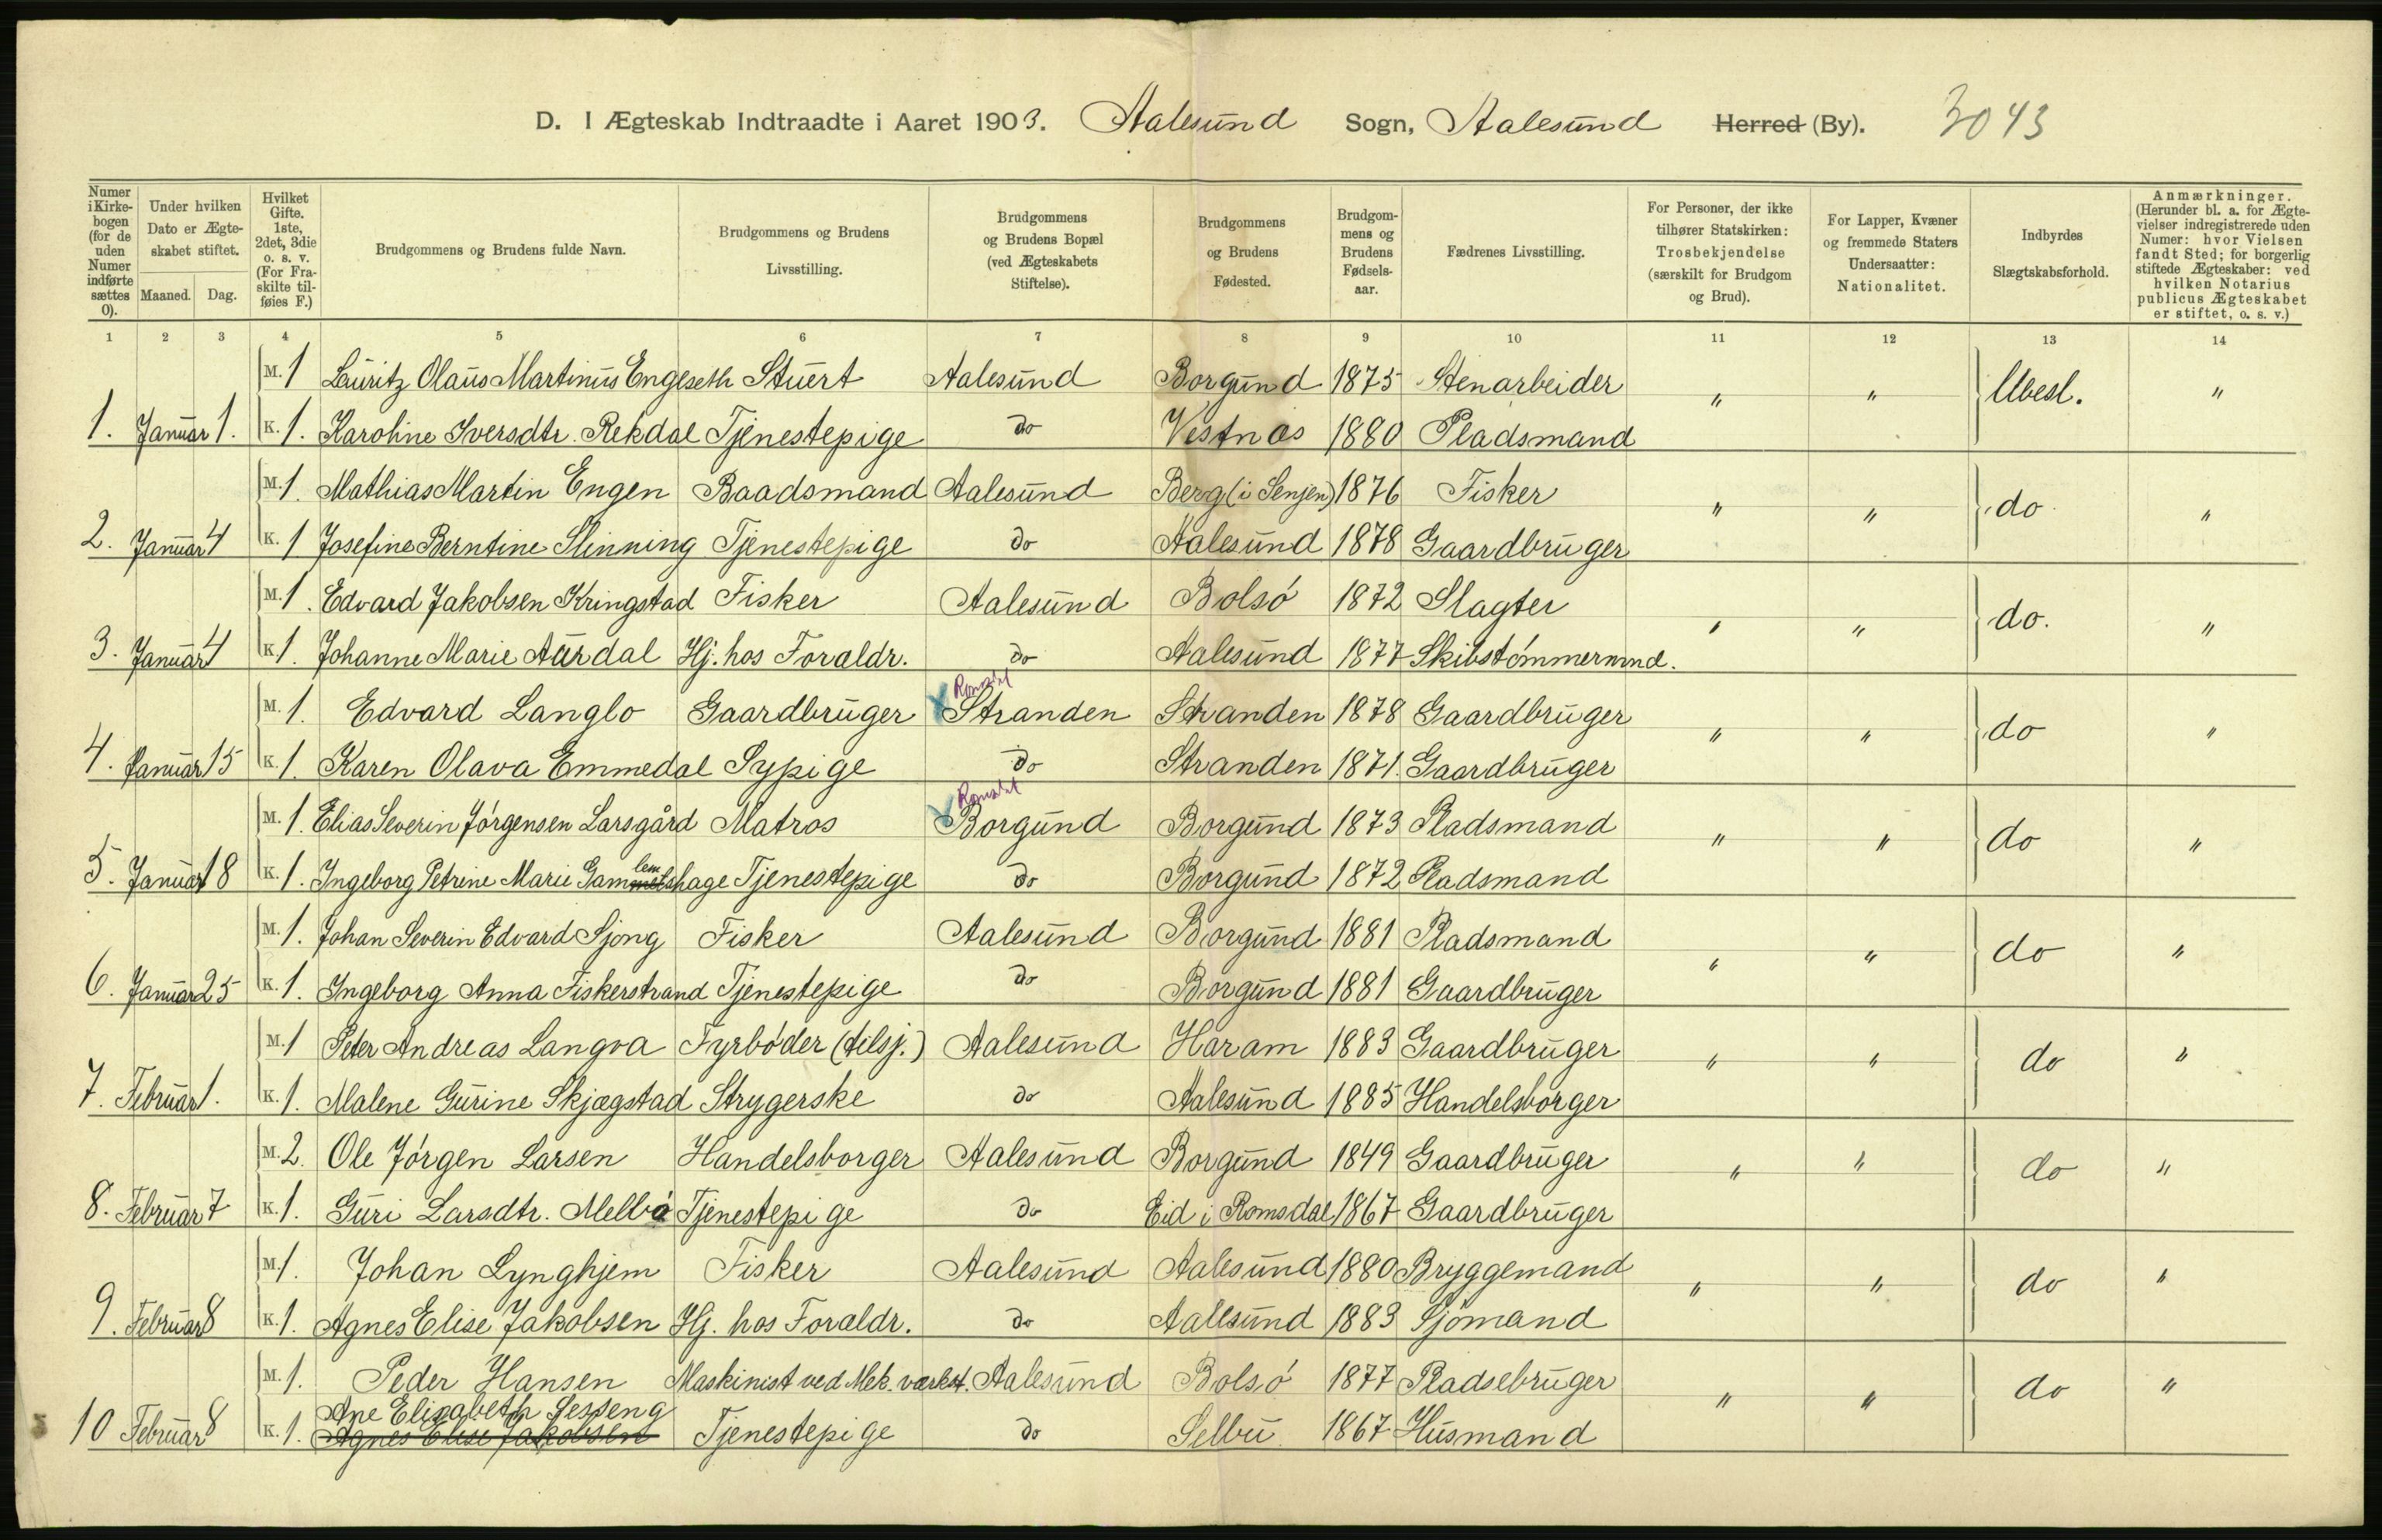 D. I Ægteskab Indtraadte i Aaret 1903. Aalesund Sogn, Aalesund Herred (By). 3043
Numer i Kirkebogen (for de uden Numer indførte sættes 0). Under hvilken Dato er Ægteskabet stiftet. Maaned. Dag. Hvilket Gifte. 1ste, 2det, 3die o. s. v. (For Fraskilte tilføies F.) Brudgommens og Brudens fulde Navn. Brudgommens og Brudens Livsstilling. Brudgommens og Brudens Bopæl (ved Ægteskabets Stiftelse). Brudgommens og Brudens Fødested. Brudgommens og Brudens Fødselsaar. Fædrenes Livsstilling. For Personer, der ikke tilhører Statskirken: Trosbekjendelse (særskilt for Brudgom og Brud). For Lapper, Kvæner og fremmede Staters Undersaatter: Nationalitet. Indbyrdes Slægtskabsforhold. Anmærkninger. (Herunder bl. a. for Ægtevielser indregistrerede uden Numer: hvor Vielsen fandt Sted; for borgerlig stiftede Ægteskaber: ved hvilken Notarius publicus Ægteskabet er stiftet, o. s. v.)
1 2 3 4 5 6 7 8 9 10 11 12 13 14
M. 1 Lauritz Olaus Martinus Engeseth Stuert Aalesund Borgund 1875 Stenarbeider " " Ubesl. "
1. Januar 1. K. 1. Karoline Iversdtr. Rekdal Tjenestepige do Vestnæs 1880 Pladsmand
M. 1. Mathias Martin Engen Baadsmand Aalesund Berg (i Senjen) 1876 Fisker " " do "
2. Januar 4 K. 1 Josefine Berntine Slinning Tjenestepige do Aalesund 1878 Gaardbruger
M. 1. Edvard Jakobsen Kringstad Fisker Aalesund Bolsó 1872 Slagter " " do. "
3. Januar 4 K. 1. Johanne Marie Aurdal Hj. hos Foraldr. do Aalesund 1877 Skibstómmermnd.
Romsdal
M. 1. Edvard Langlo Gaardbruger Stranden Stranden 1878 Gaardbruger " " do "
4. Januar 15 K. 1. Karen Olava Emmedal Sypige do Stranden 1871. Gaardbruger
Romsdal
M. 1. Elias Severin Jórgensen Larsgård Matros Borgund Borgund 1873 Pladsmand " " do "
5. Januar 18 K. 1. Ingeborg Petrine Marie Gamlemshage Tjenestepige do Borgund 1872 Pladsmand
M. 1. Johan Severin Edvard Sjong Fisker Aalesund Borgund 1881 Pladsmand " " do "
6. Januar 25 K. 1. Ingeborg Anna Fiskerstrand Tjenestepige do Borgund 1881 Gaardbruger
M. 1 Peter Andreas Langva Fyrbóder (tilsj.) Aalesund Haram 1883 Gaardbruger " " do "
7. Februar 1. K. 1. Malene Gurine Skjægstad Strygerske do Aalesund 1885 Handelsborger
M. 2. Ole Jórgen Larsen Handelsborger Aalesund Borgund 1849 Gaardbruger " " do "
8. Februar 7 K. 1. Guri Larsdtr. Melbó Tjenestepige do Eid i Romsdal 1867 Gaardbruger
M. 1. Johan Lynghjem Fisker Aalesund Aalesund 1880 Bryggemand " " do "
9. Februar 8 K. 1. Agnes Elise Jakobsen Hj. hos Foraldr. do Aalesund 1883 Sjómand
M. 1. Peder Hansen Maskinist ved Mek. værkst. Aalesund Bolsó 1877 Pladsebruger " " do "
Ane Elisabeth Sesseng
10 Februar 8 K. 1. Agnes Elise Jakobsen Tjenestepige do Selbu 1867 Husmand